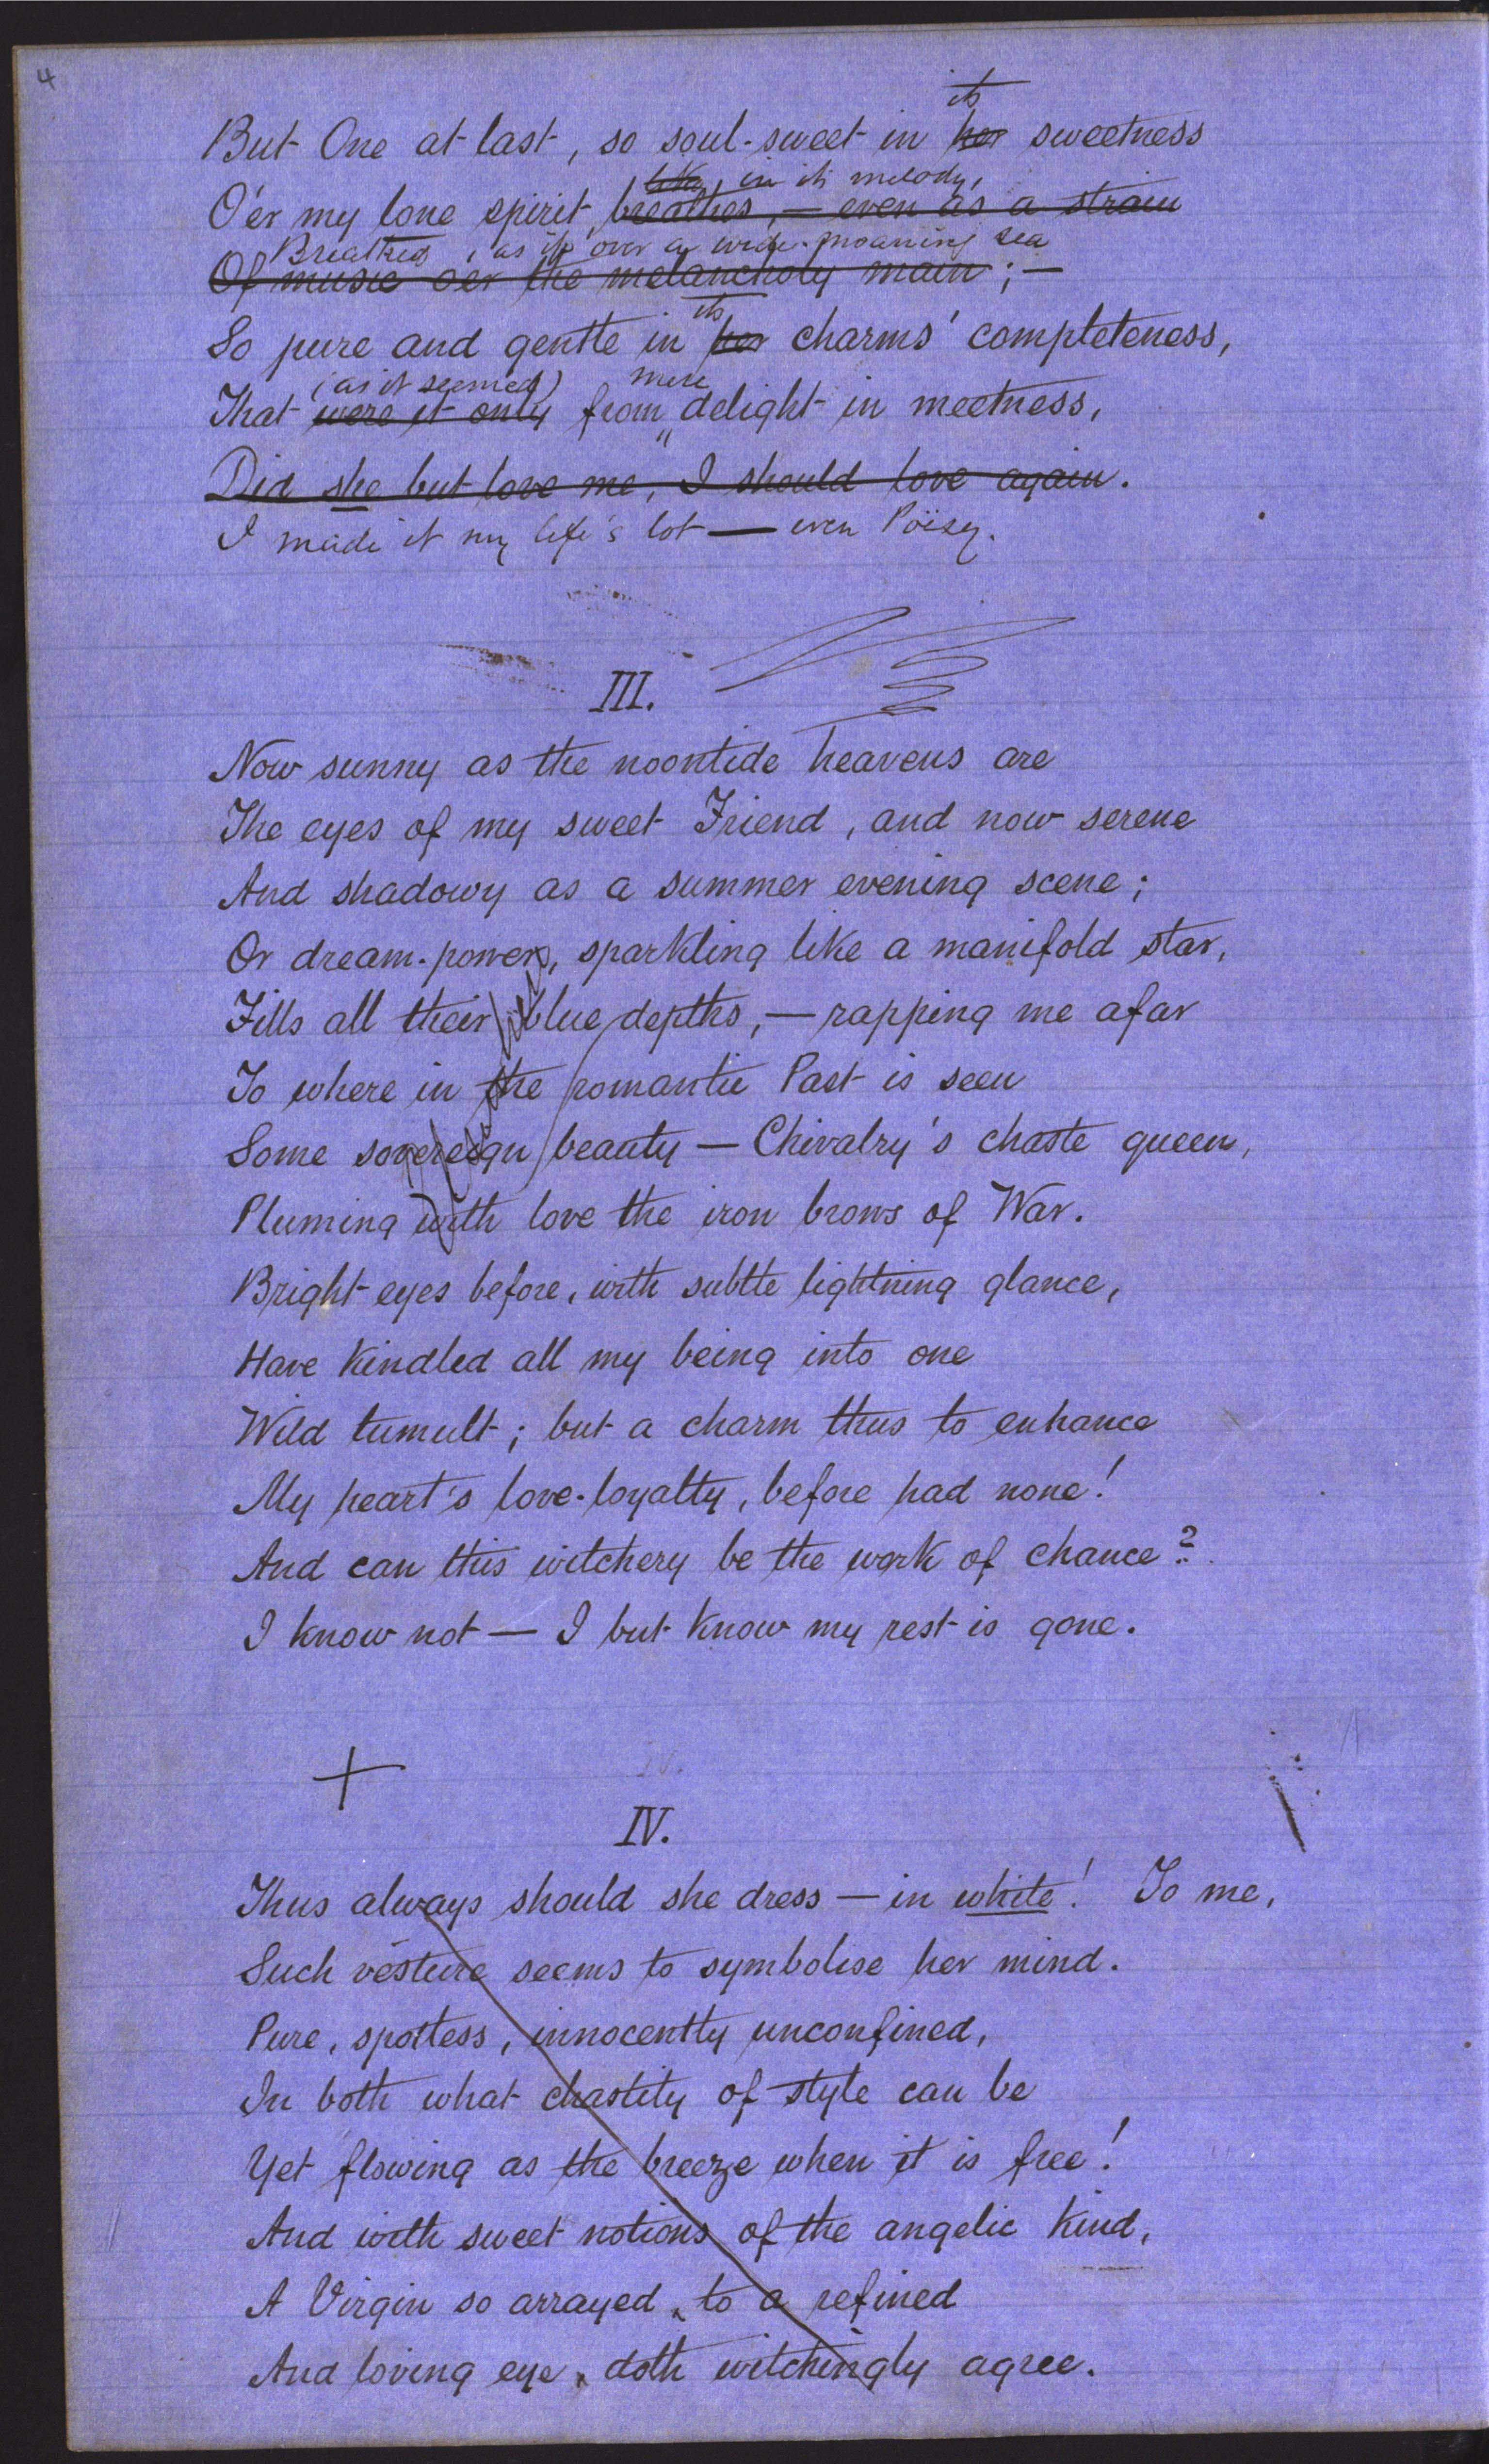 4
its
But One at last, so soul-sweet in her sweetness
like, in its melody,
O'er my lone spirit breathes, — even as a strain
Breathed, as if over a wide-moaning sea
Of music oer the melancholy main; —
its
So pure and gentle in her charms' completeness,
(as it seemed) mere
That were it only from delight in meetness,
Did she but love me, I should love again.
I made it my life's lot — even Pöisy.
III.
Now sunny as the noontide heavens are
The eyes of my sweet Friend, and now serene
And shadowy as a summer evening scene;
Or dream-powers, sparkling like a manifold star,
Fills all their blue depths, — rapping me afar
To where in the romantic Past is seen
Some sovereign beauty — Chivalry's chaste queen,
Pluming with love the iron brows of War.
Bright eyes before, with subtle lightning glance,
Have kindled all my being into one
Wild tumult; but a charm thus to enhance
My heart's love-loyalty, before had none!
And can this witchery be the work of chance?
I know not — I but know my rest is gone.
IV.
Thus always should she dress — in white! To me,
Such vesture seems to symbolise her mind.
Pure, spotless, innocently unconfined,
In both what chastity of style can be
Yet flowing as the breeze when it is free!
And with sweet notions of the angelic kind,
A Virgin so arrayed, to a refined
And loving eye, doth witchingly agree.